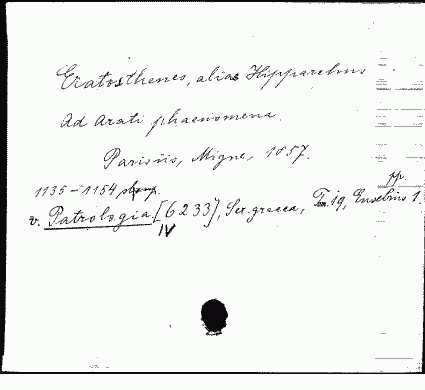 Eratosthenes, alias Hipparchus
Ad Arati phaenomena.
Parisiis, Migne, 1857.
1135-1154
pp.
v. Patrologia [6233], Ser. graeca, Tom. 19, Eusebius 1.
IV